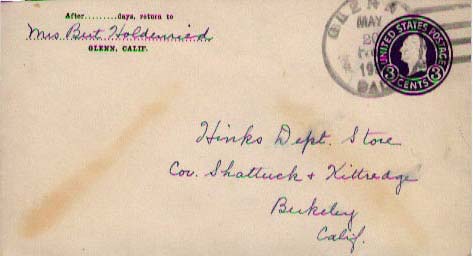 After.........days, return to
Mrs Bert Holdenried
GLENN, CALIF.
GLENN
MAY
20
19
CAL
UNITED STATES POSTAGE
3 CENTS 3
Hinks Dept. Store
Cor. Shattuck & Kittredge
Berkeley
Calif.